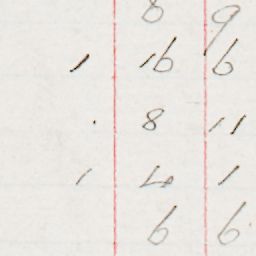 8 9
1 16 6
. 8 11
1 4 1
6 6